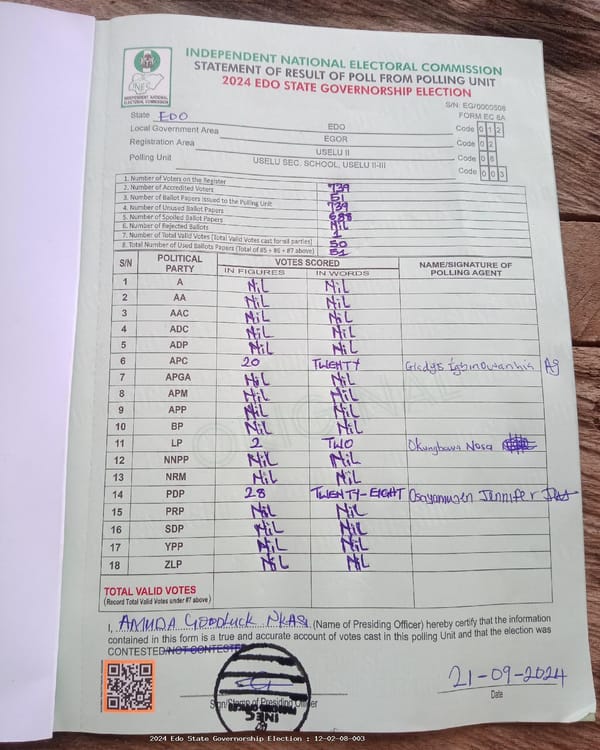 INDEPENDENT NATIONAL ELECTORAL COMMISSION
STATEMENT OF RESULT OF POLL FROM POLLING UNIT
2024 EDO STATE GOVERNORSHIP ELECTION
INEC
INDEPENDENT NATIONAL
ELECTORAL COMMISSION
S/N: EG/0000508
FORM EC 8A
State EDO
Local Government Area EDO Code 012
Registration Area EGOR Code 02
USELU II Code 08
Polling Unit USELU SEC. SCHOOL, USELU II-III Code 003
1. Number of Voters on the Register 739
2. Number of Accredited Voters 51
3. Number of Ballot Papers issued to the Polling Unit 739
4. Number of Unused Ballot Papers 688
5. Number of Spoiled Ballot Papers Nil
6. Number of Rejected Ballots 1
7. Number of Total Valid Votes (Total Valid Votes cast for all parties) 50
8. Total Number of Used Ballots Papers (Total of #5 + #6 + #7 above) 51
S/N POLITICAL PARTY VOTES SCORED NAME/SIGNATURE OF POLLING AGENT
IN FIGURES IN WORDS
1 A Nil Nil
2 AA Nil Nil
3 AAC Nil Nil
4 ADC Nil Nil
5 ADP Nil Nil
6 APC 20 TWENTY Gladys
7 APGA Nil Nil
8 APM Nil Nil
9 APP Nil Nil
10 BP Nil Nil
11 LP 2 TWO Okungbowa Nosa
12 NNPP Nil Nil
13 NRM Nil Nil
14 PDP 28 TWENTY-EIGHT Jennifer
15 PRP Nil Nil
16 SDP Nil Nil
17 YPP Nil Nil
18 ZLP Nil Nil
ORIGINAL
TOTAL VALID VOTES
(Record Total Valid Votes under #7 above)
I, AMUDA GOODLUCK NKASI (Name of Presiding Officer) hereby certify that the information
contained in this form is a true and accurate account of votes cast in this polling Unit and that the election was
CONTESTED/NOT CONTESTED
21-09-2024
Sign/Stamp of Presiding Officer Date
INEC
2024 Edo State Governorship Election : 12-02-08-003